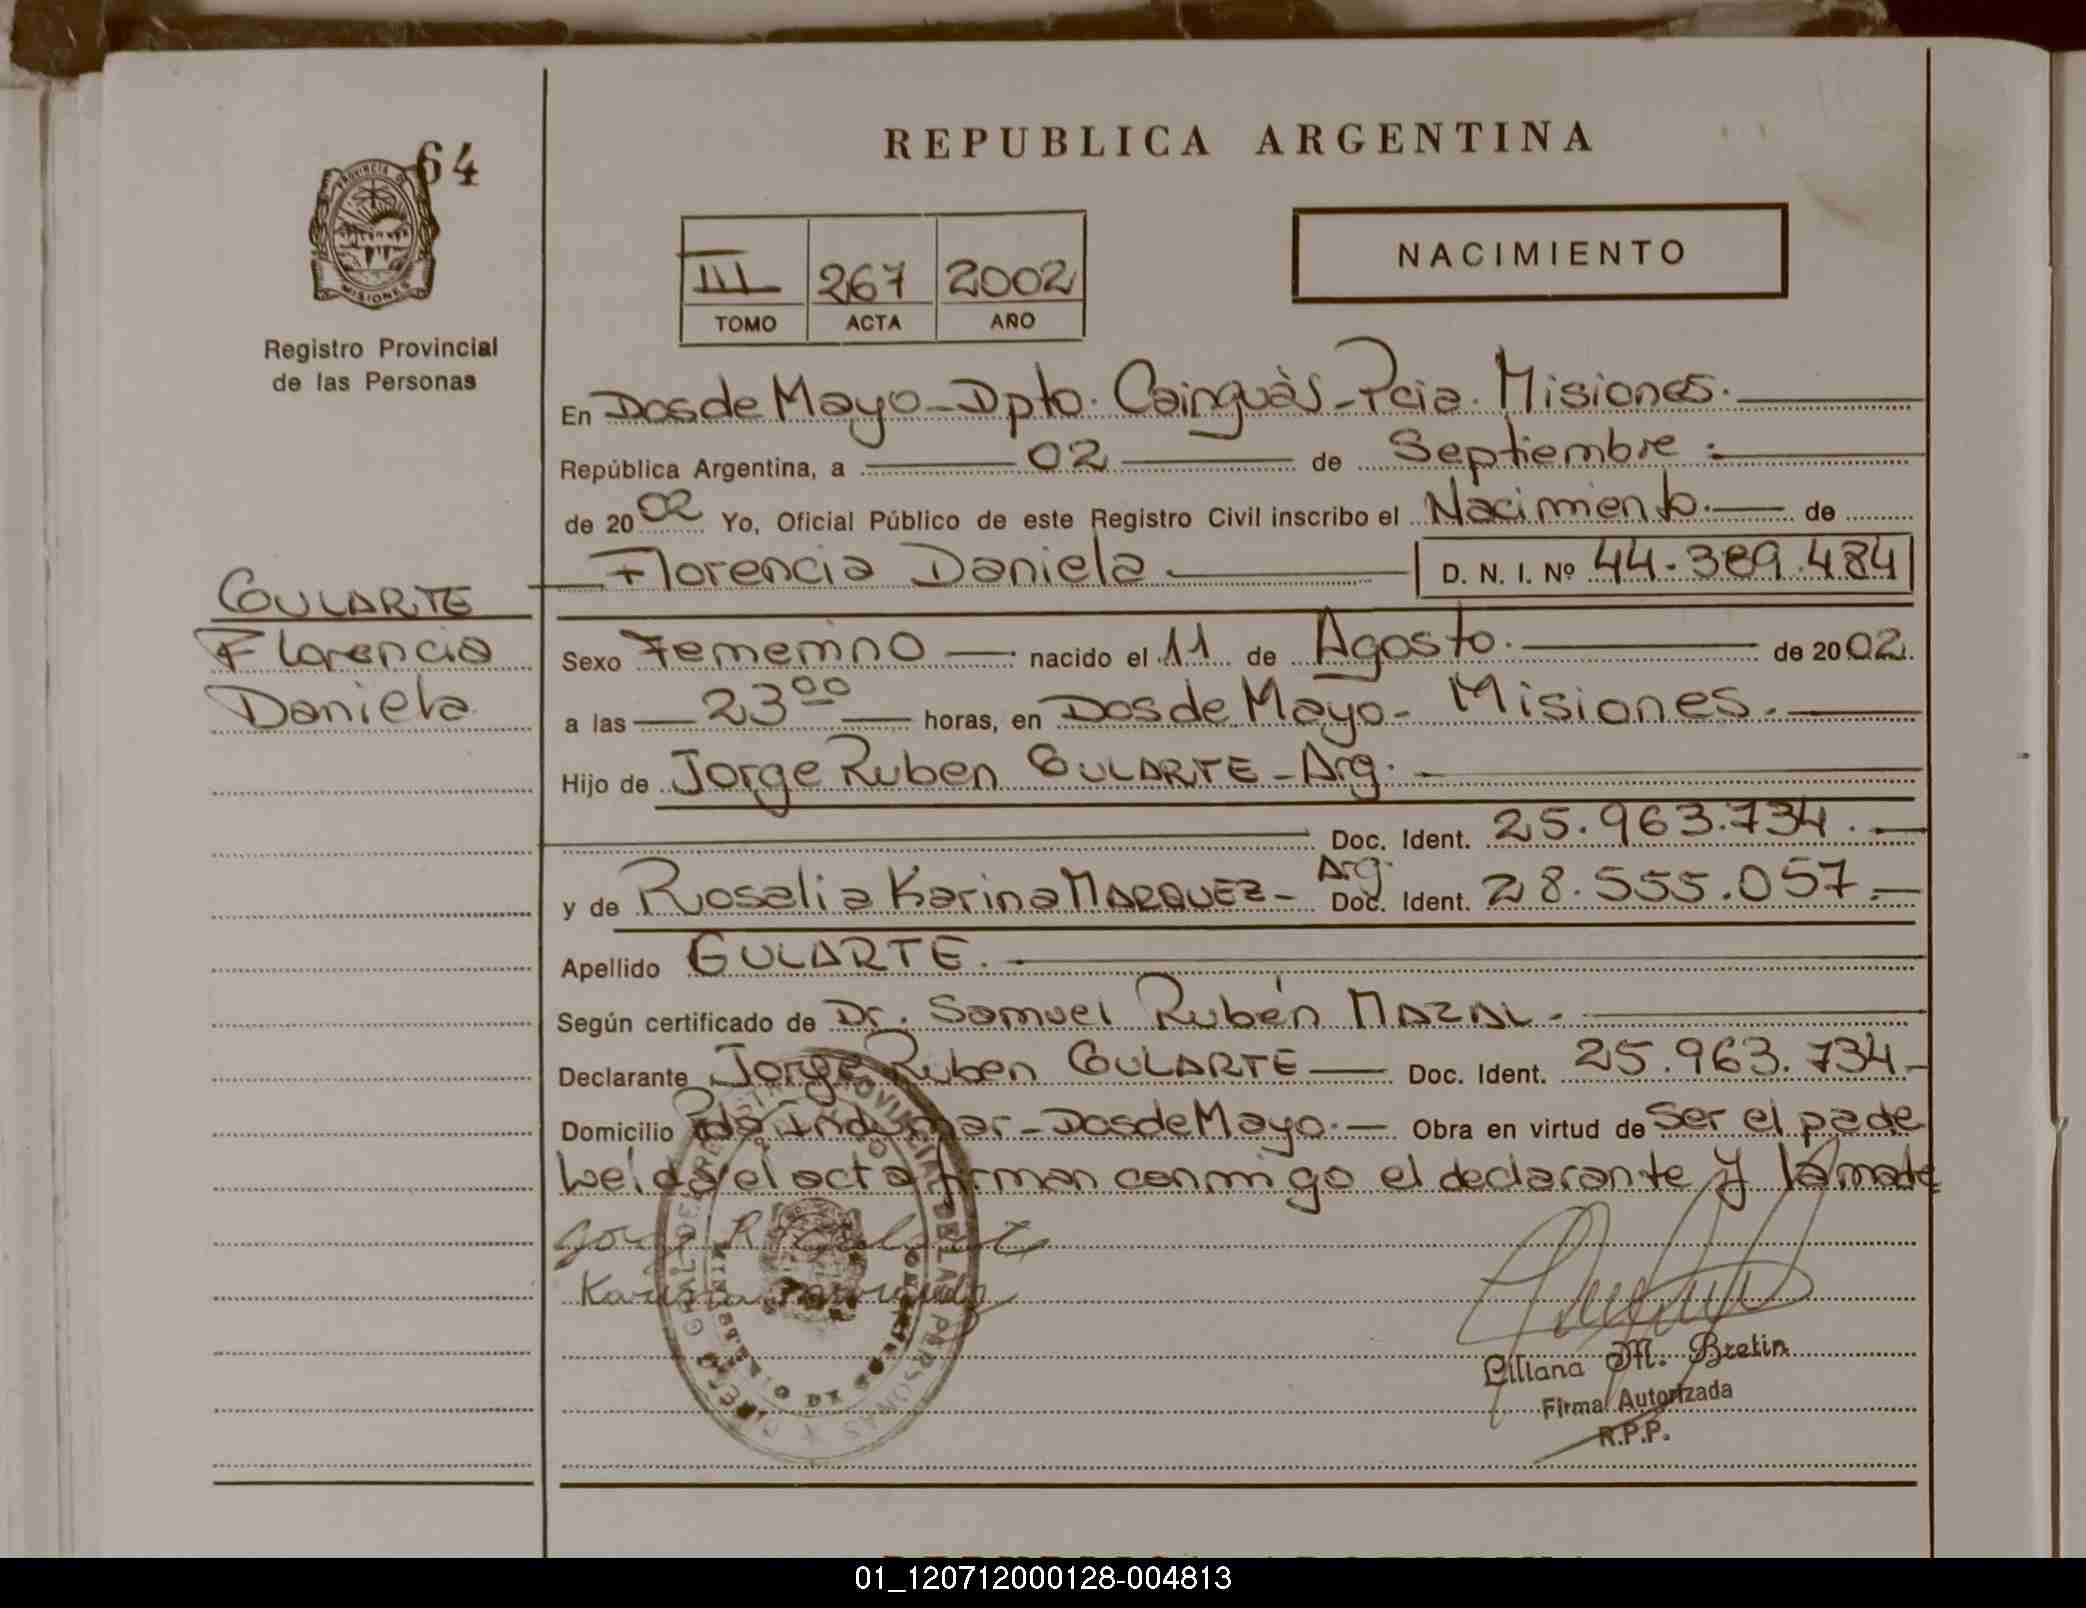 64
PROVINCIA DE
MISIONES
Registro Provincial
de las Personas
REPUBLICA ARGENTINA
III 267 2002
TOMO ACTA AÑO
NACIMIENTO
En Dos de Mayo - Dpto. Cainguàs - Pcia. Misiones.
República Argentina, a 02 de Septiembre
de 2002 Yo, Oficial Público de este Registro Civil inscribo el Nacimiento. de
Florencia Daniela D. N. I. Nº 44.389.484
GULARTE
Florencia
Daniela
Sexo Femenino nacido el 11 de Agosto. de 2002.
a las 23 00 horas, en Dos de Mayo - Misiones.
Hijo de Jorge Ruben GULARTE - Arg.
Doc. Ident. 25.963.734.
y de Rosalia Karina MARQUEZ - Arg. Doc. Ident. 28.555.057.
Apellido GULARTE.
Según certificado de Dr. Samuel Rubén MAZAL.
Declarante Jorge Ruben GULARTE Doc. Ident. 25.963.734
Domicilio Pdo Indumar - Dos de Mayo. Obra en virtud de ser el padre
Leída el acta firman conmigo el declarante y la madre
Jorge R
Karina
Liliana M. Bretin
Firma Autorizada
R.P.P.
01_120712000128-004813